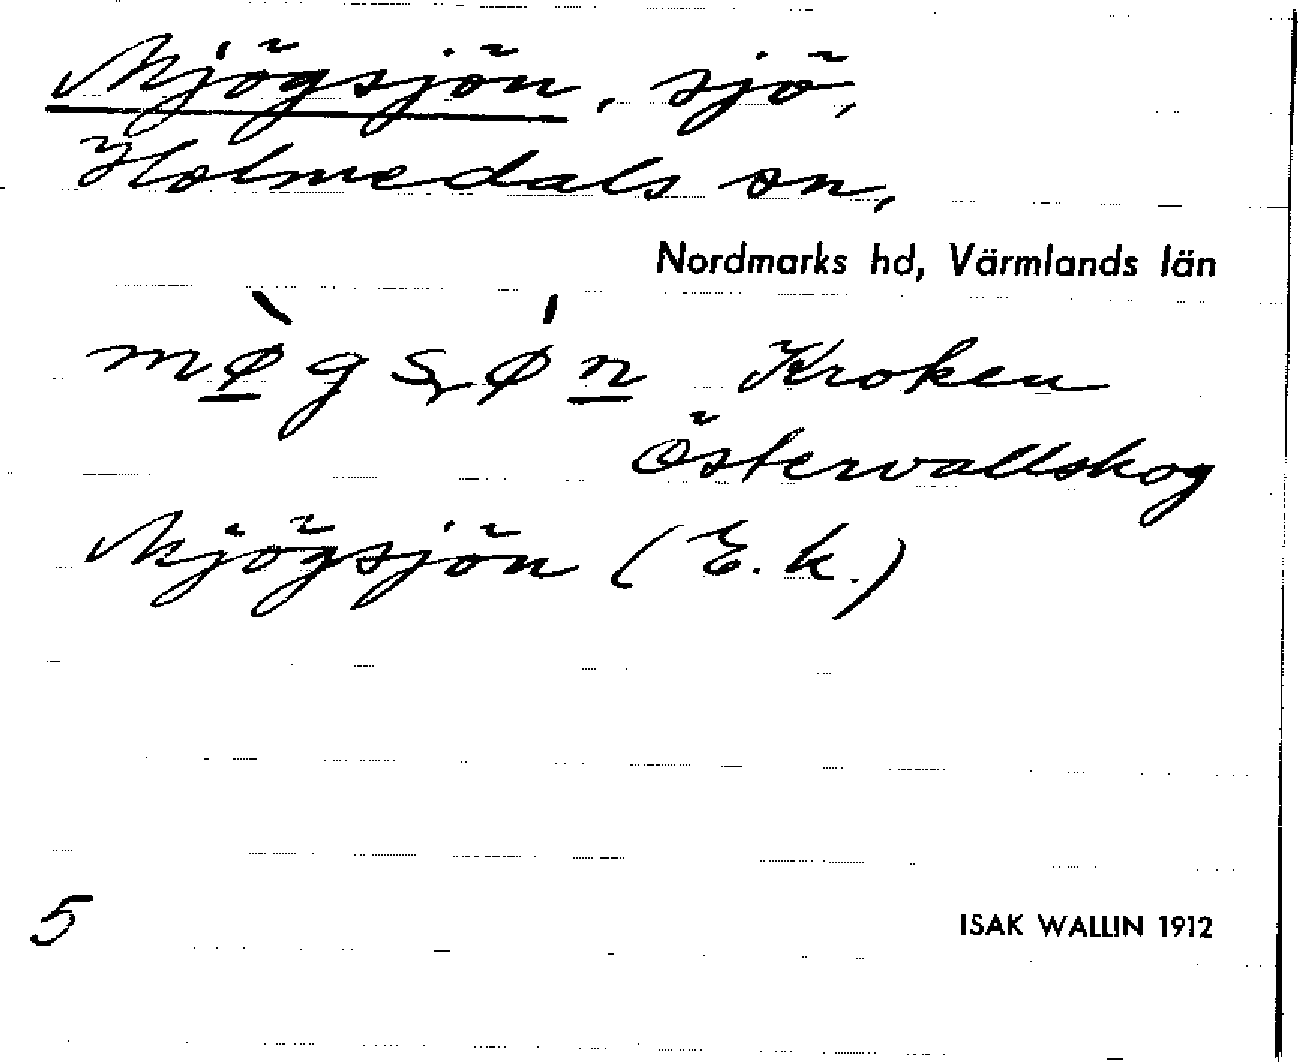 Mjögsjön, sjö,
Holmedals sn,
Nordmarks hd, Värmlands län
mø̀gsǿn Kroken
Östervallskog
Mjögsjön (E.k.)
5
ISAK WALLIN 1912